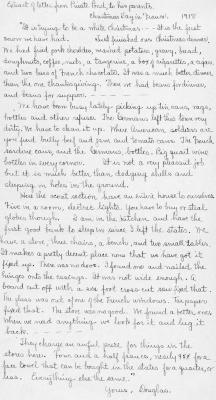 Extract of letter from Private Bond, to his parents.
Christmas Day in "France". 1918
"It is trying to be a white Christmas. - It is the first
snow we have had. Just finished our Christmas dinner,
We had fried pork shoulder, mashed potatoes, gravy, bread,
doughnuts, coffee, nuts, a tangerine, a box of cigarettes, a cigar,
and two bars of French chocolate. It was a much better dinner
than the one Thanksgiving. Then we had beans for dinner,
and beans for supper. - - -
We have been busy lately - picking up tin cans, rags,
bottles and other refuse. The Germans left this town very
dirty. We have to clean it up. Where American soldiers are
you find bully beef and jam and tomato cans. The French,
sardine cans, and the Germans, bottles. Big quart wine
bottles in every corner. It is not a very pleasant job
but it is much better than dodging shells and
sleeping in holes in the ground.
Now the scout section, have an entire house to ourselves.
Five in a room, electric lights. You have to buy or steal
globes though. I am in the kitchen and have the
first good bunk to sleep in since I left the states. We
have a stove, three chairs, a bench, and two small tables.
It makes a pretty decent place now that we have got it
fixed up. There was no door. I found one and nailed the
hinges onto the casings. It was not wide enough. A
board cut off with a six foot cross cut saw fixed that.
The glass was out of one of the French windows. Tar paper
fixed that. The stove was no good. We found a better one.
When we need anything we look for it and lug it
back. - - - - - - -
They charge an awful price for things in the
stores here. Four and a half francs, nearly 90¢ for a
face towel that can be bought in the states for a quarter, or
less. Everything else the same."
Yours, Douglas.